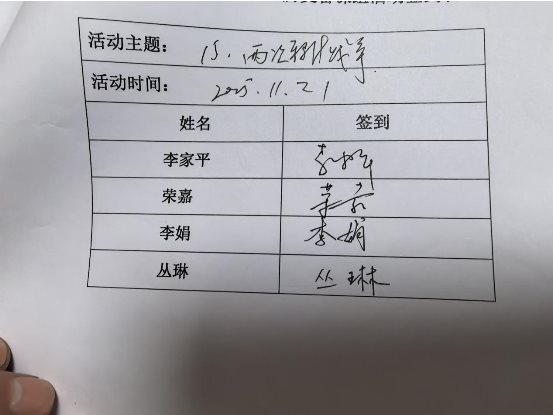 活动主题： 15. 两次
活动时间： 2025.11.21
姓名 签到
李家平
荣嘉 荣嘉
李娟 李娟
丛琳 丛琳